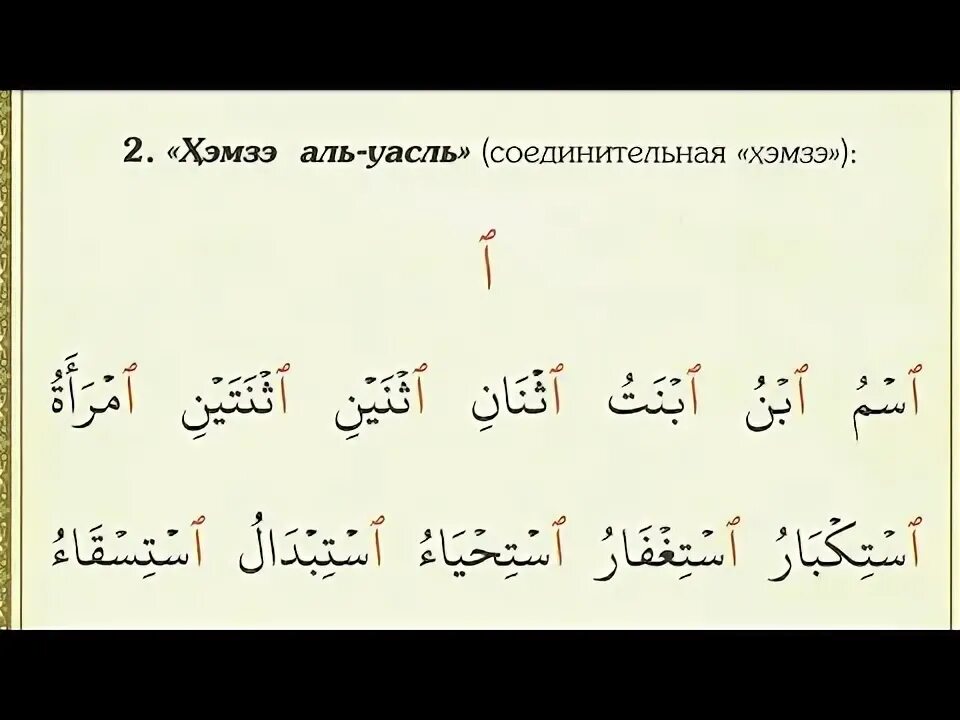 2. «Ҳэмзэ аль-уасль» (соединительная «хэмзэ»):
ٱ
ٱسْمُ ٱبْنُ ٱبْنَتُ ٱثْنَانِ ٱثْنَيْنِ ٱثْنَتَيْنِ ٱمْرَأَةُ
ٱسْتِكْبَارُ ٱسْتِغْفَارُ ٱسْتِحْيَاءُ ٱسْتِبْدَالُ ٱسْتِسْقَاءُ